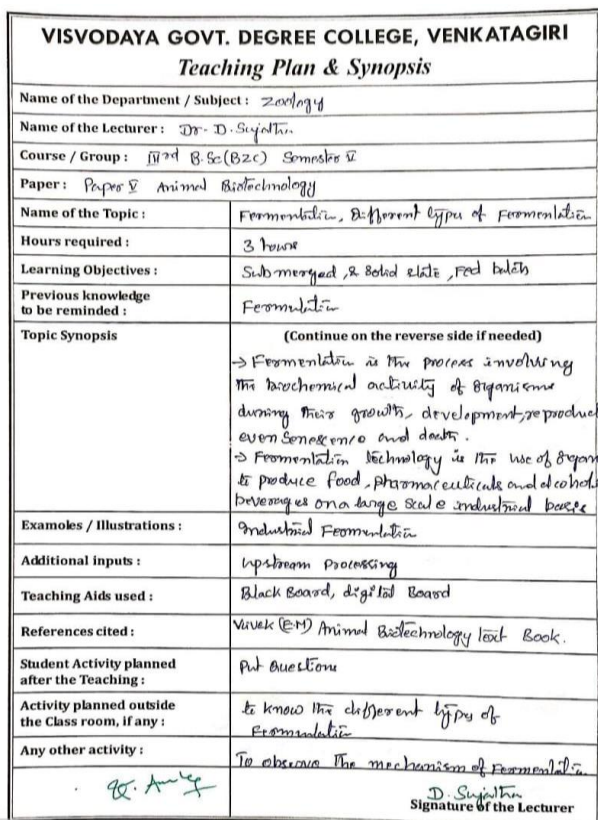 VISVODAYA GOVT. DEGREE COLLEGE, VENKATAGIRI
Teaching Plan & Synopsis
Name of the Department / Subject : Zoology
Name of the Lecturer : Dr. D. Sujatha
Course / Group : IIIrd B.Sc (BZC) Semester V
Paper : Paper V Animal Biotechnology
Name of the Topic : Fermentation, Different types of Fermentation
Hours required : 3 hours
Learning Objectives : Submerged, & Solid state, Fed batch
Previous knowledge
to be reminded : Fermentation
Topic Synopsis (Continue on the reverse side if needed)
→ Fermentation is the process involving
the biochemical activity of organisms
during their growth, development, reproduct
even Senescence and death.
→ Fermentation technology is the use of organ
to produce food, pharmaceuticals and alcohol
beverages on a large scale industrial basis
Examoles / Illustrations : Industrial Fermentation
Additional inputs : Upstream Processing
Teaching Aids used : Black Board, digital Board
References cited : Vivek (E.M) Animal Biotechnology text Book.
Student Activity planned
after the Teaching : Put Questions
Activity planned outside
the Class room, if any : to know the different types of
Fermentation
Any other activity : To observe The mechanism of Fermentation
D. Sujatha
Signature of the Lecturer